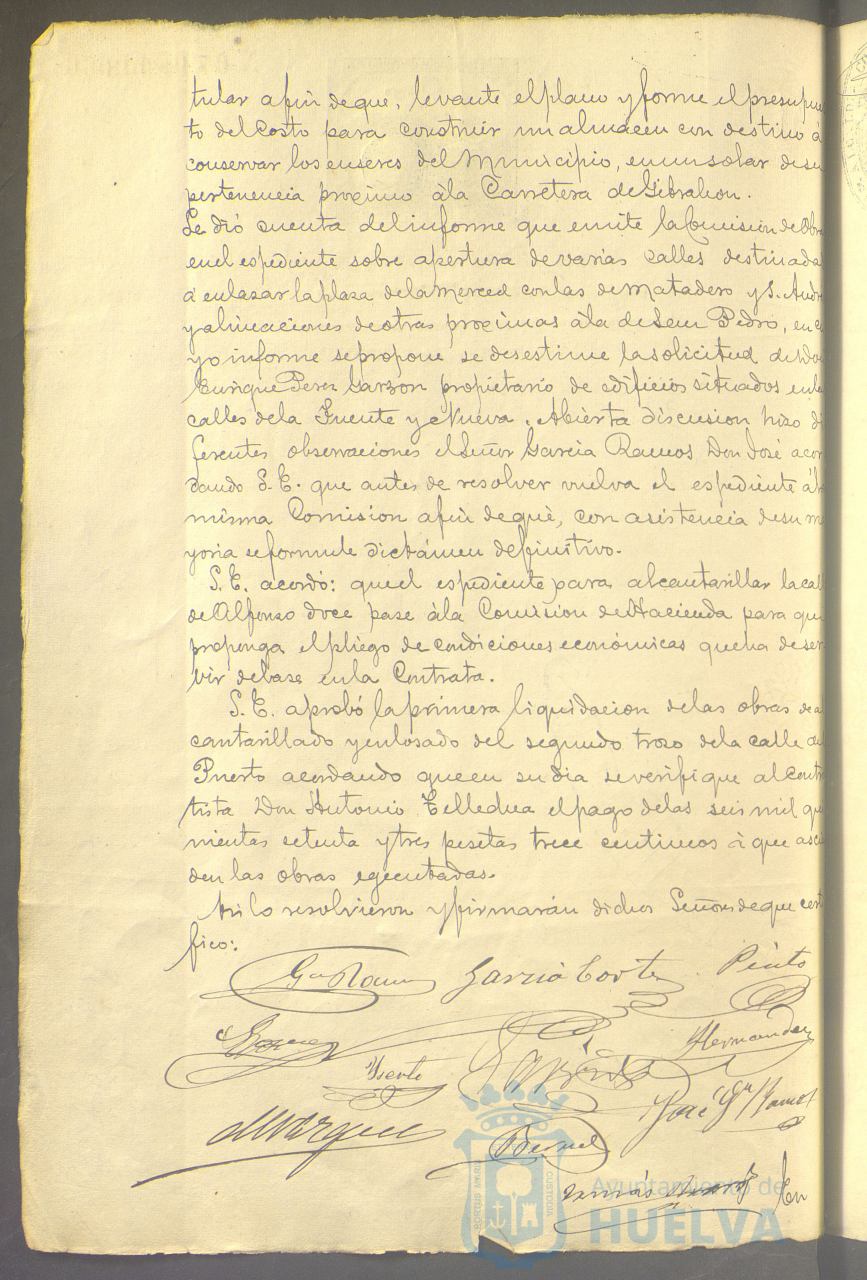 tular afin de que, levante el plano y forme el presupues
to del Costo para construir un almacen con destino á
conservar los enseres del Municipio, en un solar de su
pertenencia proximo á la Carretera de Gibraleon.
Se dió cuenta del informe que emite la Comision de Obra
en el espediente sobre apertura de varias calles destinada
á enlazar la plaza de la Merced con las de Matadero y S. Andr
y alineaciones de otras proximas á la de San Pedro, en cu
yo informe se propone se desestime la solicitud de Don
Enrique Perez Garzon propietario de edificios situados en la
calles de la Fuente y Nueva. Abierta discusion hizo di
ferentes observaciones el Señor Garcia Ramos Don José acor
dando S. E. que antes de resolver vuelva el espediente á la
misma Comision afin de que, con asistencia de su ma
yoria se formule dictámen definitivo.
S. E. acordó: que el espediente para alcantarillar la call
de Alfonso doce pase á la Comision de Hacienda para que
proponga el pliego de condiciones económicas que ha de ser
vir de base en la Contrata.
S. E. aprobó la primera liquidacion de las obras de al
cantarillado y enlosado del segundo trozo de la calle del
Puerto acordando que en su dia se verifique al contra
tista Don Antonio el pago de las seis mil qui
nientas setenta y tres pesetas trece centimos á que ascien
den las obras egecutadas.
Asi lo resolvieron y firmarán dichos Señores de que certi
fico:
Ga Ramos Garcia Cortes Pinto
Hernandez
José Ga Ramos
Marquez
Bernal
Tomás
En
PORTUS MARIS CUSTODIA
Ayuntamiento de
HUELVA